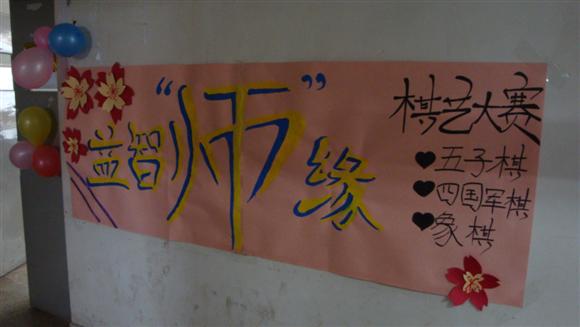 益智“师”缘
棋艺大赛
五子棋
四国军棋
象棋